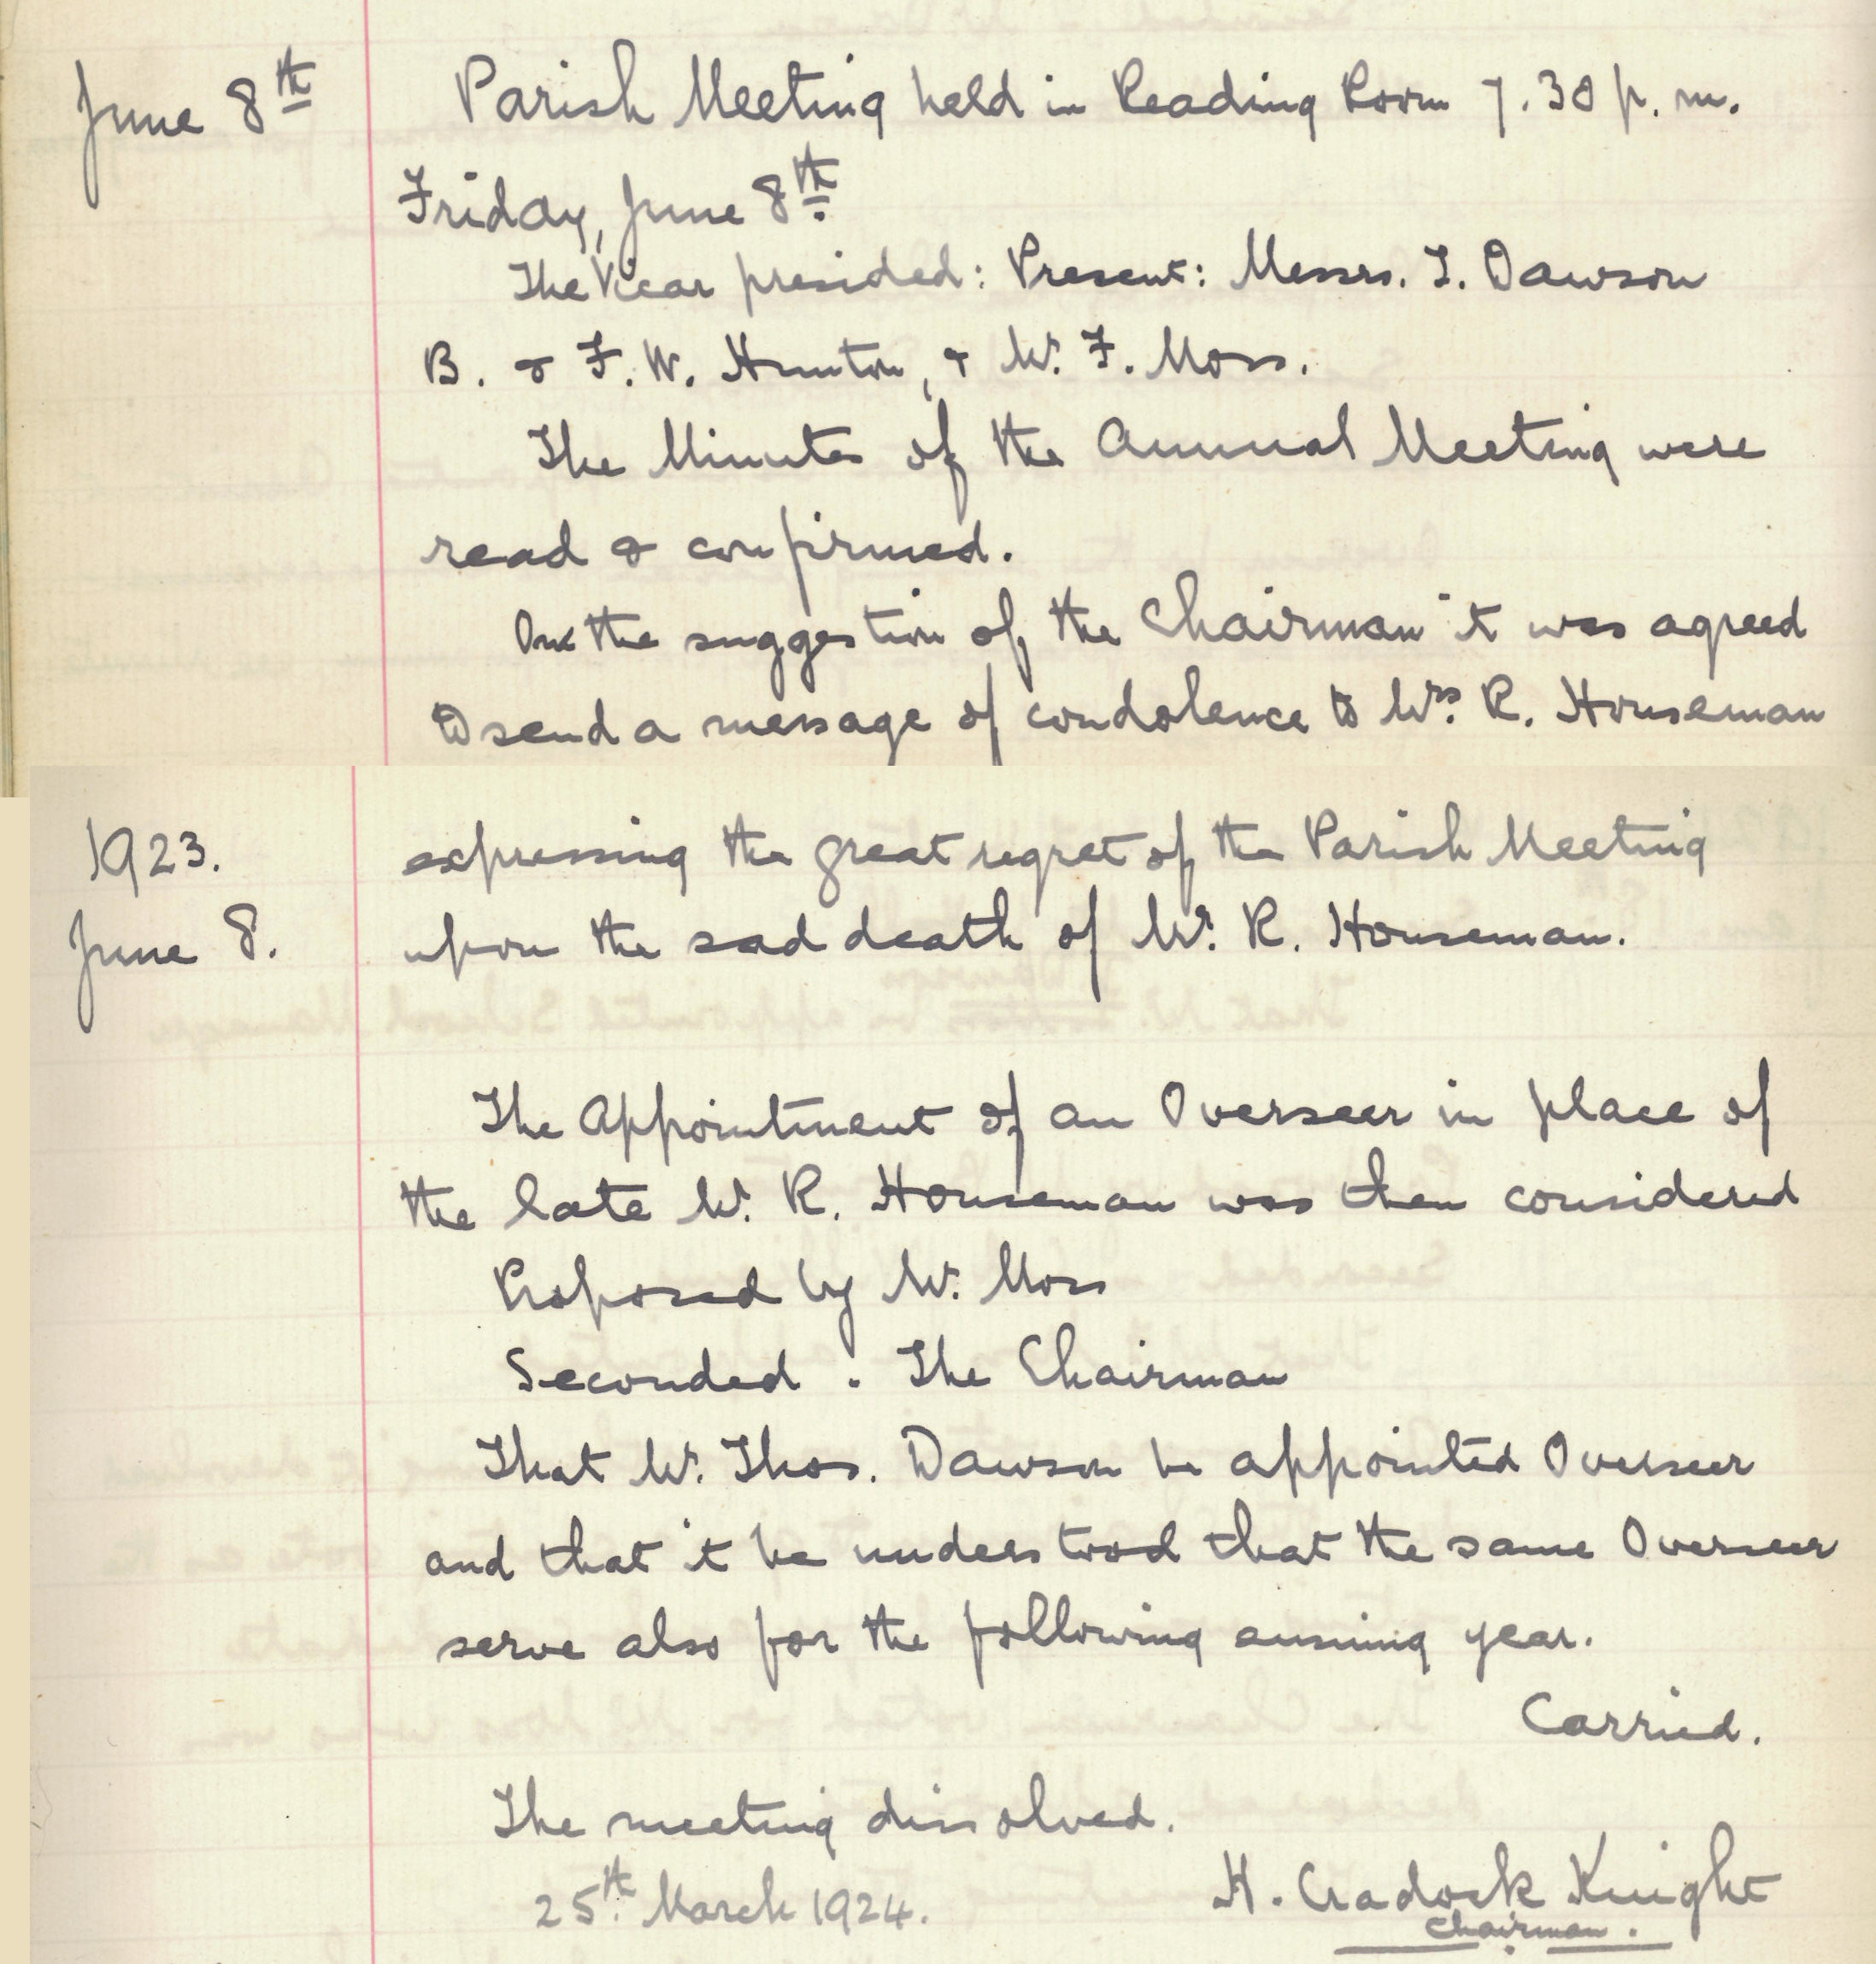 June 8th Parish Meeting held in Reading Room 7.30 p.m.
Friday, June 8th.
The Vicar presided: Present: Messrs. T. Dawson
B. & F. W. Hunton, & Mr. F. Moss.
The Minutes of the Annual Meeting were
read & confirmed.
On the suggestion of the Chairman it was agreed
to send a message of condolence to Mrs. R. Houseman
1923. expressing the great regret of the Parish Meeting
June 8. upon the sad death of Mr. R. Houseman.
The Appointment of an Overseer in place of
the late Mr. R. Houseman was then considered
Proposed by Mr. Moss
Seconded. The Chairman
That Mr. Thos. Dawson be appointed Overseer
and that it be understood that the same Overseer
serve also for the following ensuing year.
Carried.
The meeting dissolved.
25th. March 1924. H. Cradock Knight
Chairman.